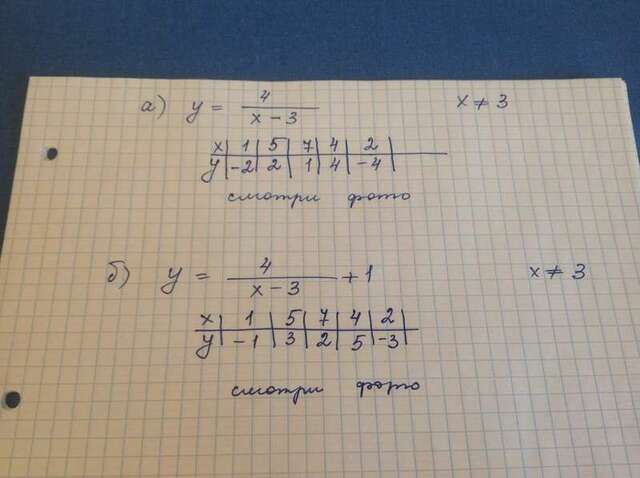 а) y = 4/(x - 3) x ≠ 3
x | 1 | 5 | 7 | 4 | 2 |
y | -2 | 2 | 1 | 4 | -4 |
смотри фото
б) y = 4/(x - 3) + 1 x ≠ 3
x | 1 | 5 | 7 | 4 | 2 |
y | -1 | 3 | 2 | 5 | -3 |
смотри фото